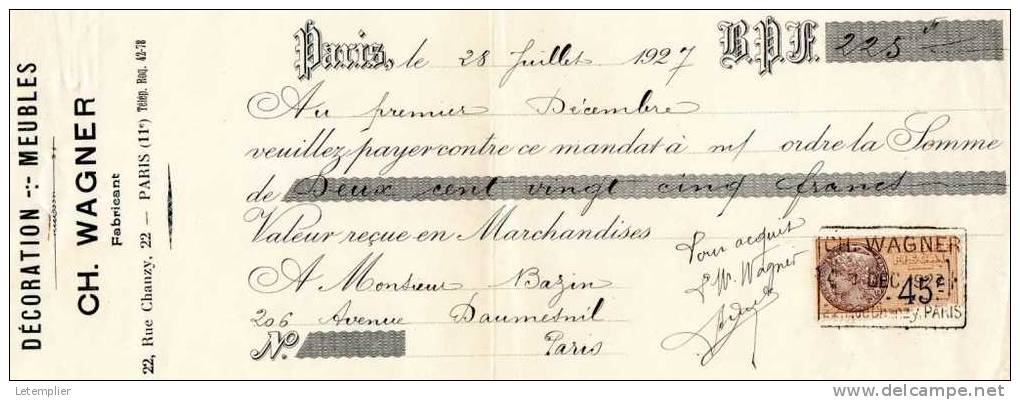 DÉCORATION -:- MEUBLES
CH. WAGNER
Fabricant
22, Rue Chanzy, 22 — PARIS (11e) Télép. Roq. 42-78
Paris, le 28 Juillet 1927 B.P.F. 225
Au premier Décembre
veuillez payer contre ce mandat à m/ ordre la Somme
de Deux cent vingt cinq francs
Valeur reçue en Marchandises
A Monsieur Bazin
206 Avenue Daumesnil
No Paris
Pour acquit
Wagner
CH. WAGNER
DEC 1927
45
Chanzy, PARIS
Letemplier
http://www.delcampe.net